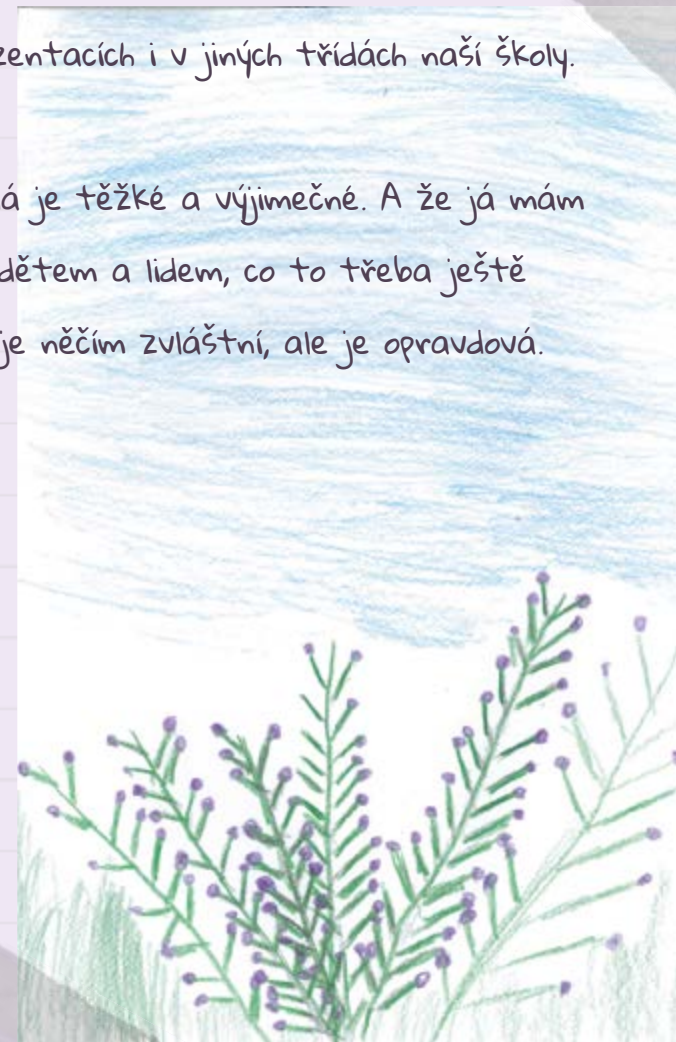 zentacích i v jiných třídách naší školy.
á je těžké a výjimečné. A že já mám
dětem a lidem, co to třeba ještě
je něčím zvláštní, ale je opravdová.